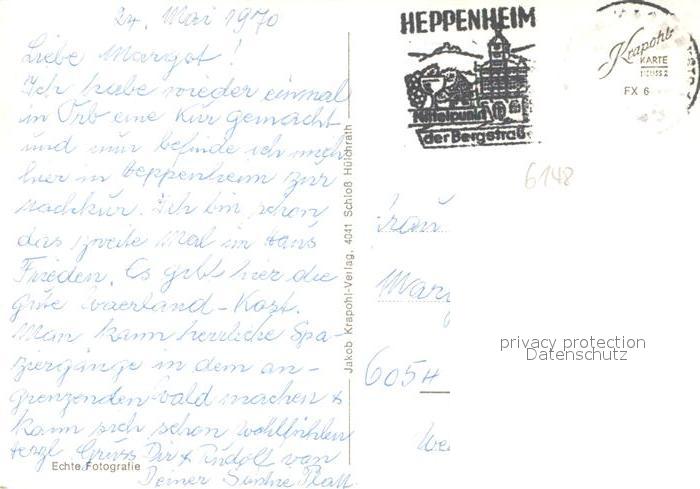 24. Mai 1970
Liebe Margot!
Ich habe wieder einmal
in Orb eine Kur gemacht
und nun befinde ich mich
hier in Heppenheim zur
Nachkur. Ich bin schon
das zweite Mal im Haus
Frieden. Es gibt hier die
gute Waerland-Kost.
Man kann herrliche Spa-
ziergänge in dem an-
grenzenden Wald machen &
kann sich schon wohlfühlen
herzl. Grüss Dir & Rudolf von
Deiner
Echte Fotografie
Jakob Krapohl-Verlag, 4041 Schloß Hülchrath
HEPPENHEIM
Mittelpunkt
der Bergstraße
Krapohl
KARTE
NEUSS 2
FX 6
6148
Frau
Marg
605
We
privacy protection
Datenschutz